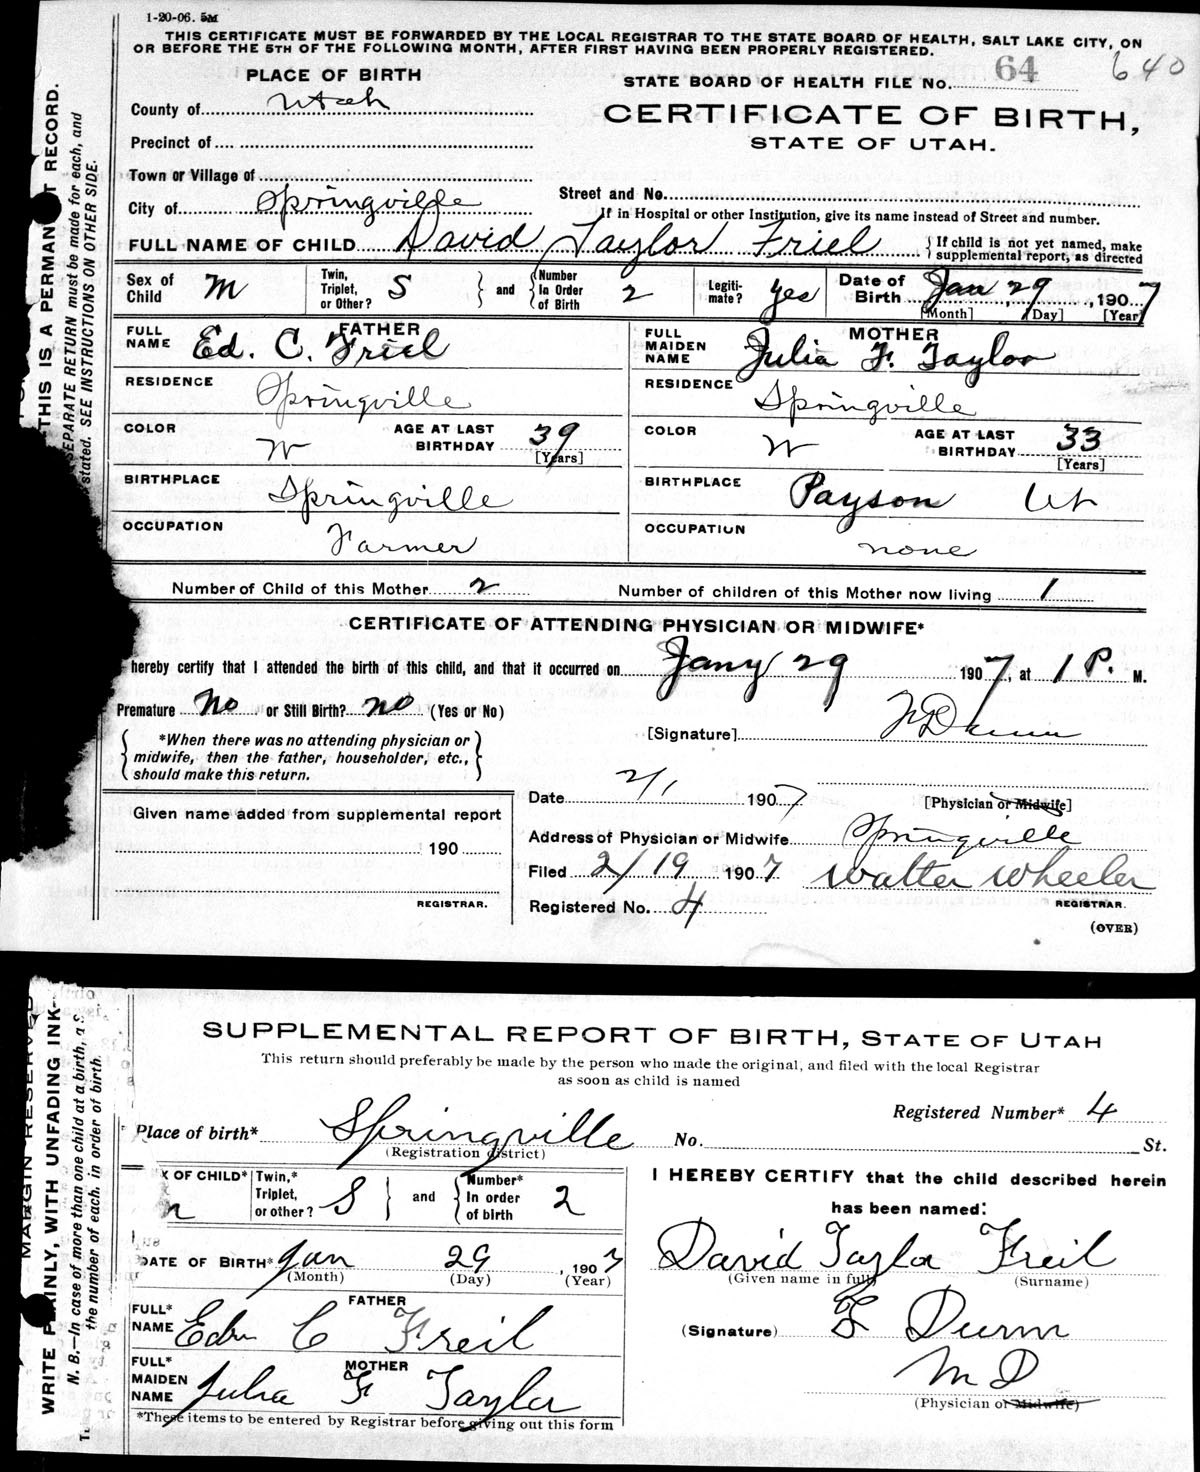 1-20-06. 5M
THIS CERTIFICATE MUST BE FORWARDED BY THE LOCAL REGISTRAR TO THE STATE BOARD OF HEALTH, SALT LAKE CITY, ON
OR BEFORE THE 5TH OF THE FOLLOWING MONTH, AFTER FIRST HAVING BEEN PROPERLY REGISTERED.
640
PLACE OF BIRTH
STATE BOARD OF HEALTH FILE No. 64
County of Utah
CERTIFICATE OF BIRTH,
STATE OF UTAH.
Precinct of
Town or Village of
Street and No.
City of Springville
If in Hospital or other Institution, give its name instead of Street and number.
FULL NAME OF CHILD David Taylor Friel
If child is not yet named, make
supplemental report, as directed
Sex of Child M
Twin, Triplet, or Other? S and Number In Order of Birth 2
Legiti- mate? yes
Date of Birth Jan 29, 1907
[Month] [Day] [Year]
FATHER
FULL NAME Ed. C. Friel
MOTHER
FULL MAIDEN NAME Julia F. Taylor
RESIDENCE Springville
RESIDENCE Springville
COLOR W AGE AT LAST BIRTHDAY 39 [Years]
COLOR W AGE AT LAST BIRTHDAY 33 [Years]
BIRTHPLACE Springville
BIRTHPLACE Payson Ut
OCCUPATION Farmer
OCCUPATION none
Number of Child of this Mother 2 Number of children of this Mother now living 1
CERTIFICATE OF ATTENDING PHYSICIAN OR MIDWIFE*
hereby certify that I attended the birth of this child, and that it occurred on Jany 29 1907, at 1 P. M.
Premature No or Still Birth? no (Yes or No)
[Signature]
*When there was no attending physician or
midwife, then the father, householder, etc.,
should make this return.
Date 2/1 1907 [Physician or Midwife]
Given name added from supplemental report
190
REGISTRAR.
Address of Physician or Midwife Springville
Filed 2/19 1907 Walter Wheeler
Registered No. 4 REGISTRAR.
(OVER)
THIS IS A PERMAN T RECORD.
SEPARATE RETURN must be made for each, and
stated. SEE INSTRUCTIONS ON OTHER SIDE.
SUPPLEMENTAL REPORT OF BIRTH, STATE OF UTAH
This return should preferably be made by the person who made the original, and filed with the local Registrar
as soon as child is named
Registered Number* 4
Place of birth* Springville No. St.
(Registration district)
X OF CHILD*
Twin,* Triplet, or other? S and Number* In order of birth 2
DATE OF BIRTH* Jan 29, 1907
(Month) (Day) (Year)
FATHER
FULL* NAME C Freil
MOTHER
FULL* MAIDEN NAME Julia F Taylor
*These items to be entered by Registrar before giving out this form
I HEREBY CERTIFY that the child described herein
has been named:
David Taylor Freil
(Given name in full) (Surname)
(Signature) Dunn
M D
(Physician or Midwife)
MARGIN RESERVED
WRITE PLAINLY, WITH UNFADING INK-
N. B.—In case of more than one child at a birth, a s
the number of each, in order of birth.